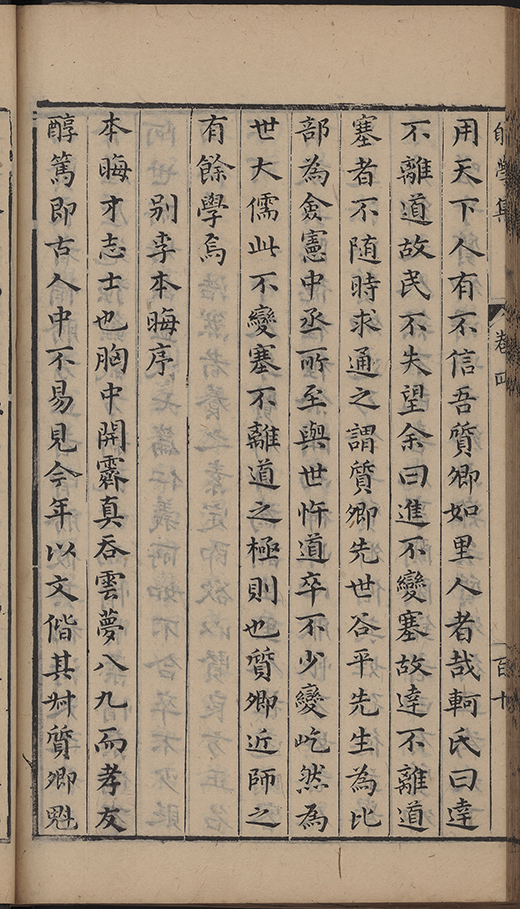 卷四
百十
用天下人有不信吾質卿如里人者哉軻氏曰達
不離道故民不失望余曰進不變塞故達不離道
塞者不随時求通之謂質卿先世谷平先生為比
部為僉憲中丞所至與世忤道卒不少變屹然為
世大儒此不變塞不離道之極則也質卿近師之
有餘學焉
别李本晦序
本晦才志士也胸中開霽真吞雲夢八九而孝友
醇篤即古人中不易見今年以文偕其叔質卿魁